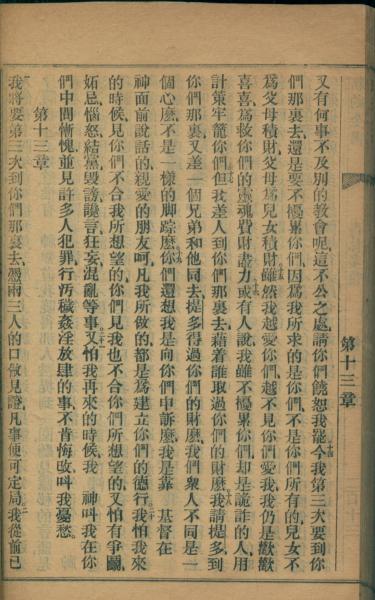 又有何事不及別的教會呢、這不公之處、請你們饒恕我罷、今我第三次要到你
們那裏去、還是要不擾累你們、因爲我所求的是你們、不是你們所有的、兒女不
爲父母積財、父母爲兒女積財、雖然我越愛你們、越不見你們愛我、我仍是歡歡
喜喜、爲救你們的靈魂費財盡力、或有人說、我雖不擾累你們、却是詭詐的人、用
計策牢籠你們、但我差人到你們那裏去、藉着誰取過你們的財麽、我請提多到
你們那裏、又差一個兄弟和他同去、提多得過你們的財麽、我們衆人不同是一
個心麽、不是一樣的脚踪麽、你們還想我是向你們申訴麽、我是靠 基督在
神面前說話的、親愛的朋友呵、凡我所做的、都是爲建立你們的德行、我怕我來
的時候、見你們不合我所想望的、你們見我也不合你們所想望的、又怕有爭鬭、
妬忌、惱怒、結黨、毀謗、讒言、狂妄、混亂等事、又怕我再來的時候、我 神叫我在你
們中間慚愧、並見許多人犯罪、行汚穢姦淫放肆的事、不肯悔改、叫我憂愁。
第十三章
我將要第三次到你們那裏去、憑兩三人的口做見證、凡事便可定局、我從前已
第十三章